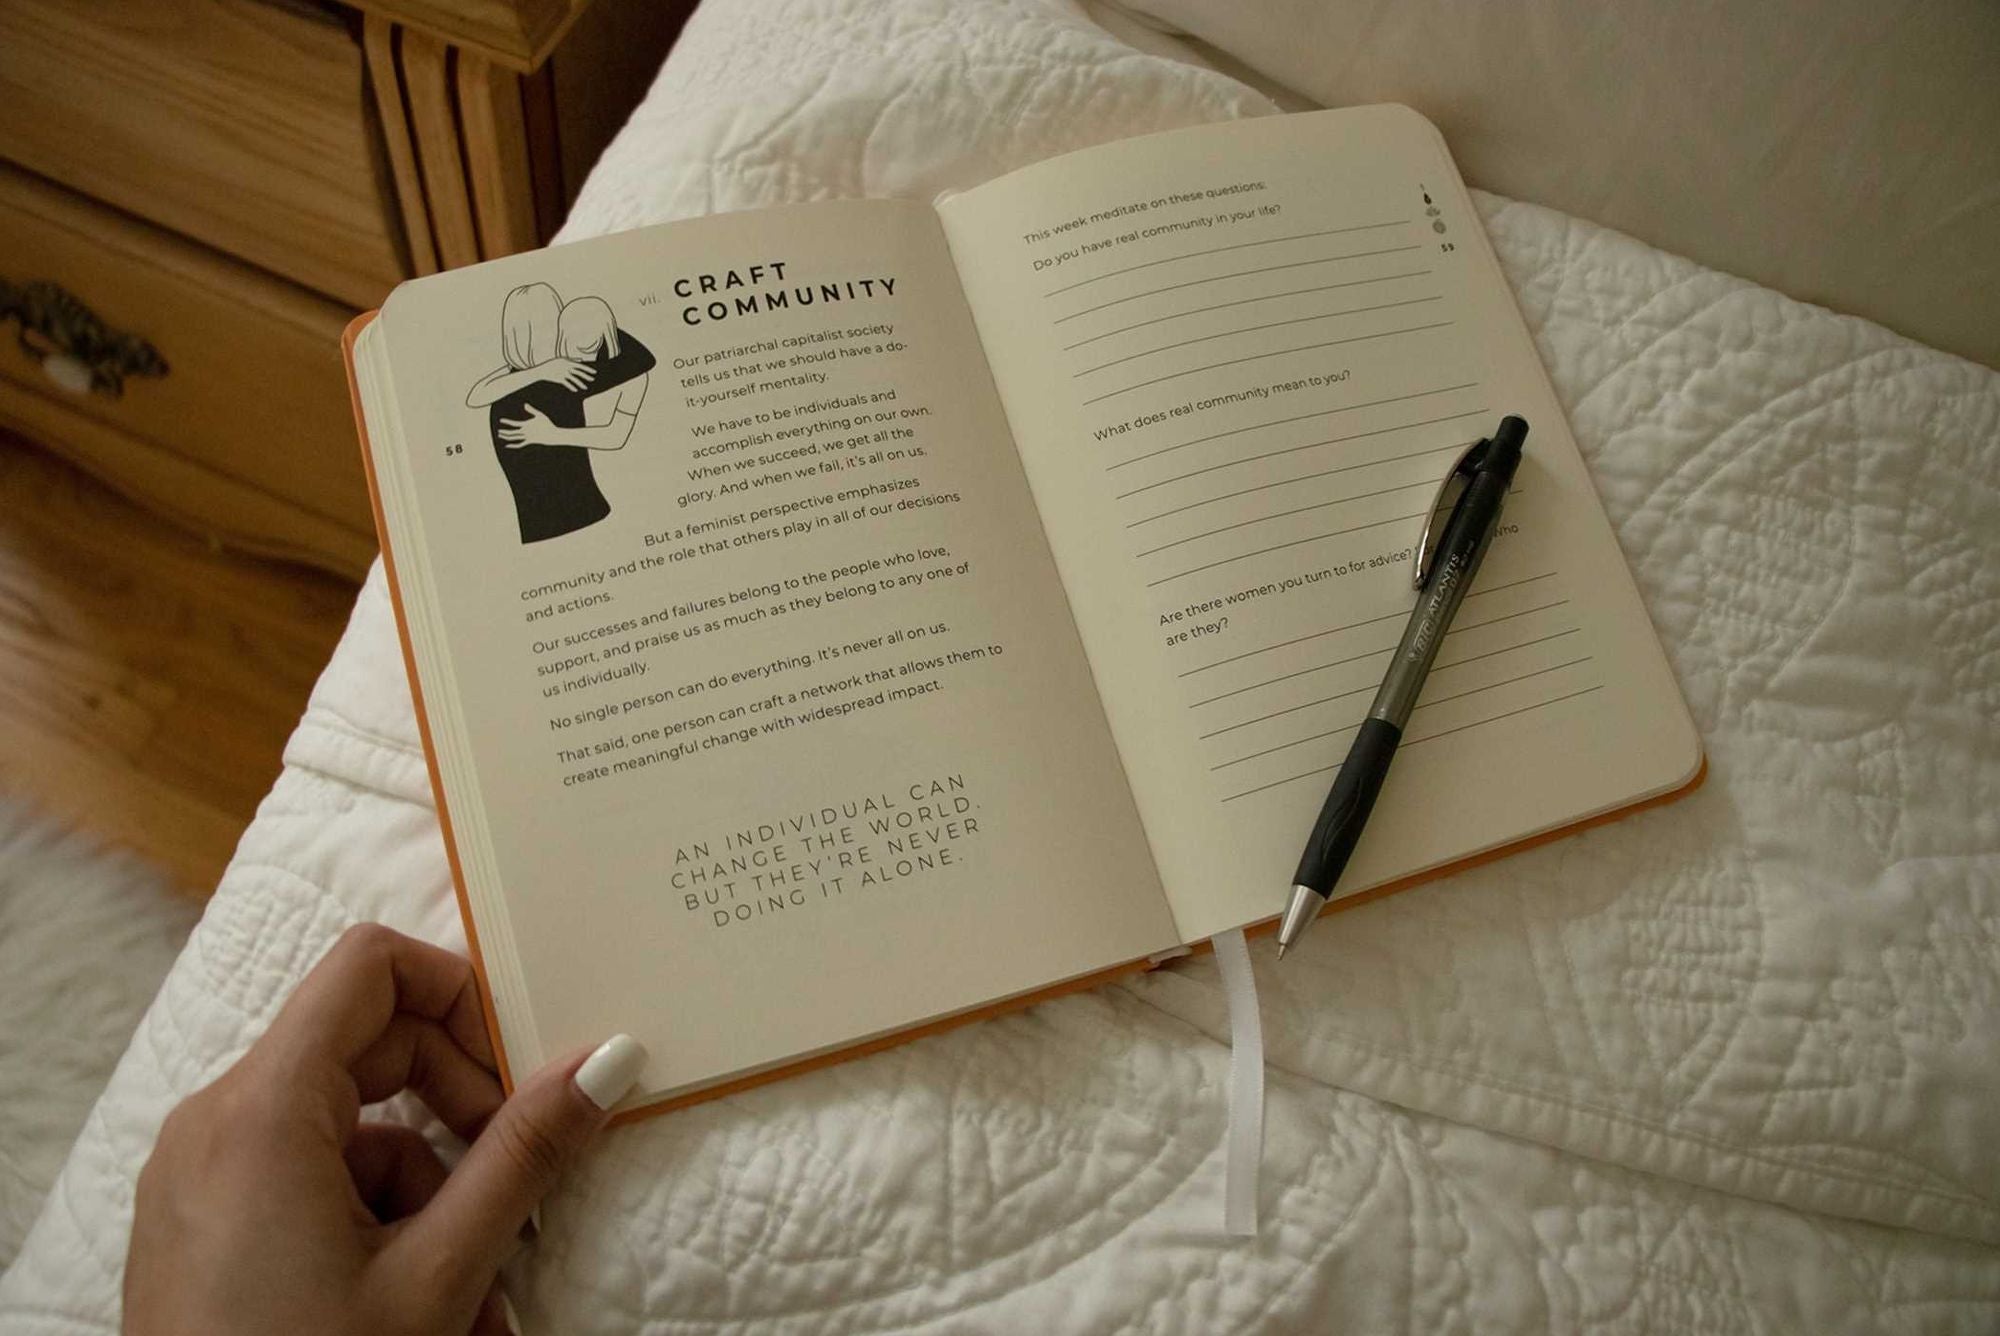 58
vii. CRAFT
COMMUNITY
Our patriarchal capitalist society
tells us that we should have a do-
it-yourself mentality.
We have to be individuals and
accomplish everything on our own.
When we succeed, we get all the
glory. And when we fail, it's all on us.
But a feminist perspective emphasizes
community and the role that others play in all of our decisions
and actions.
Our successes and failures belong to the people who love,
support, and praise us as much as they belong to any one of
us individually.
No single person can do everything. It's never all on us.
That said, one person can craft a network that allows them to
create meaningful change with widespread impact.
AN INDIVIDUAL CAN
CHANGE THE WORLD.
BUT THEY'RE NEVER
DOING IT ALONE.
This week meditate on these questions:
Do you have real community in your life?
59
What does real community mean to you?
Are there women you turn to for advice? Who
are they?
BIC ATLANTIS